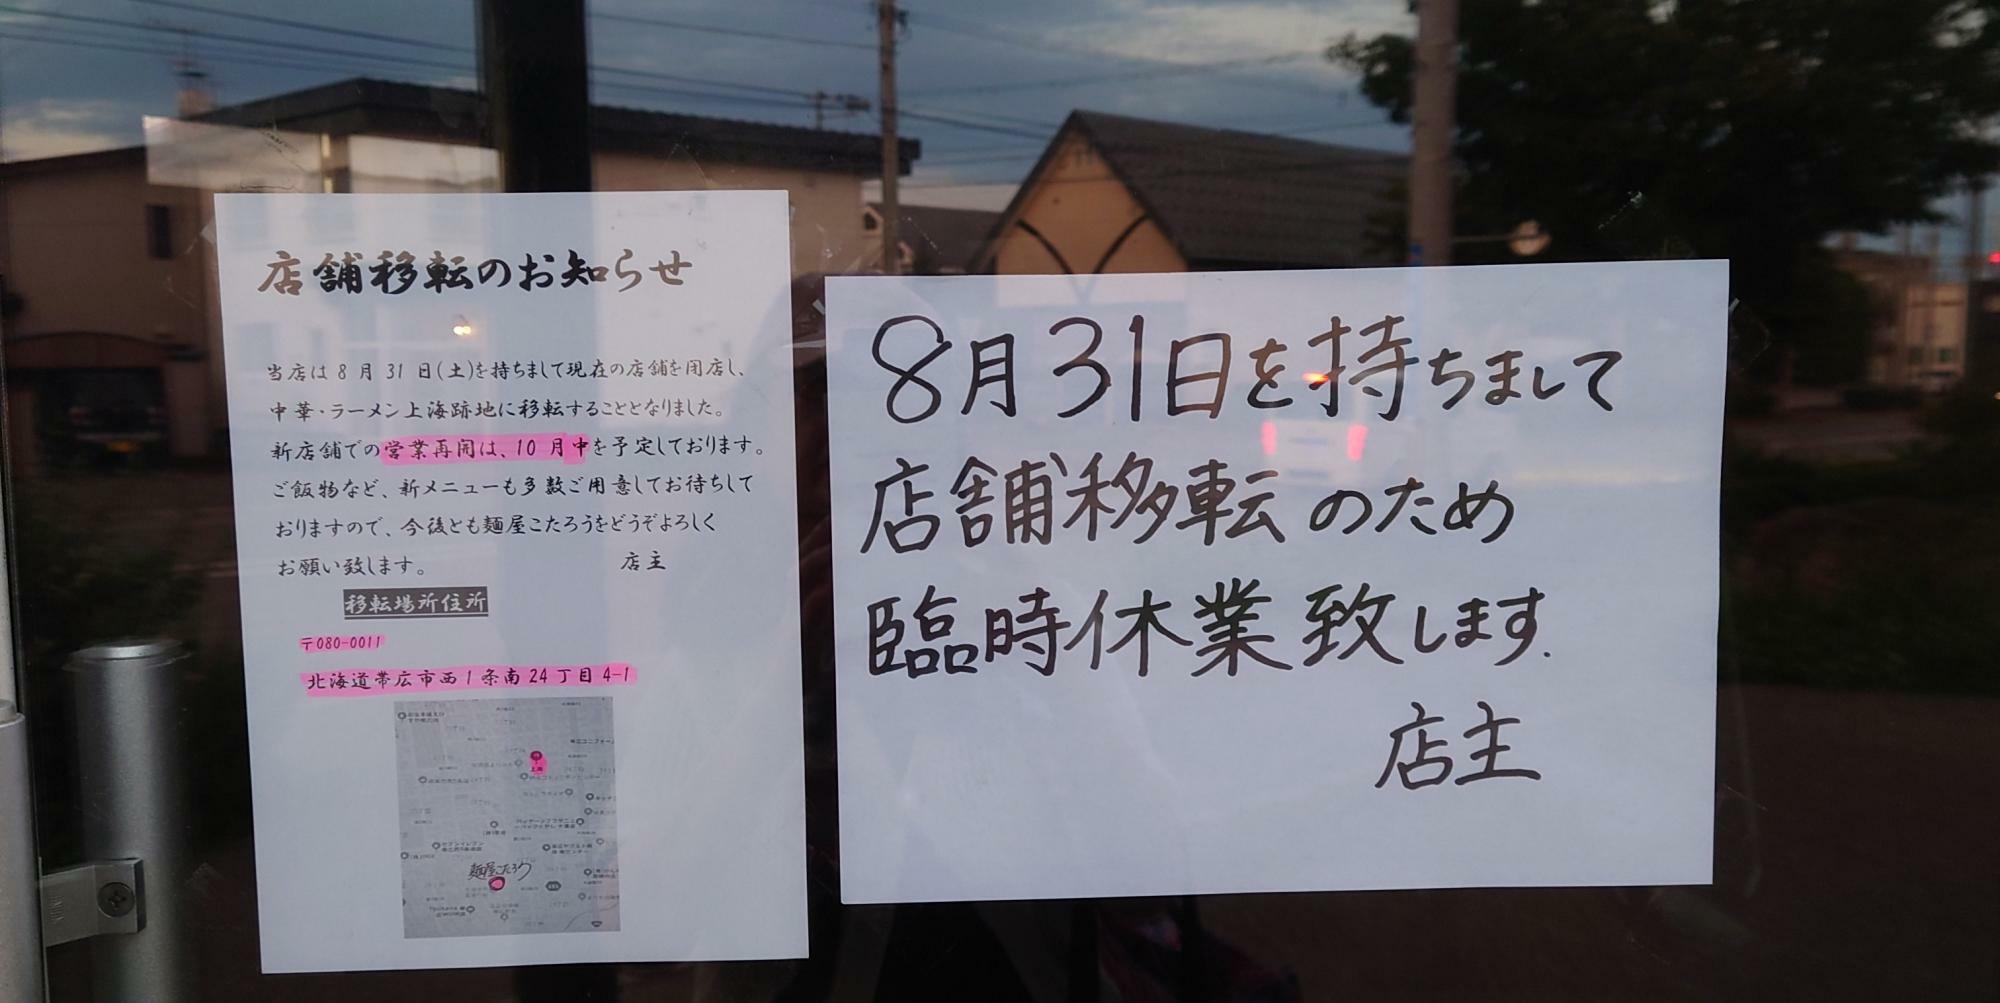 店舗移転のお知らせ
当店は8月31日(土)を持ちまして現在の店舗を閉店し、
中華・ラーメン上海跡地に移転することとなりました。
新店舗での営業再開は、10月中を予定しております。
ご飯物など、新メニューも多数ご用意してお待ちして
おりますので、今後とも麺屋こたろうをどうぞよろしく
お願い致します。 店主
移転場所住所
〒080-0011
北海道帯広市西1条南24丁目4-1
上海
麺屋こたろう
8月31日を持ちまして
店舗移転のため
臨時休業致します.
店主